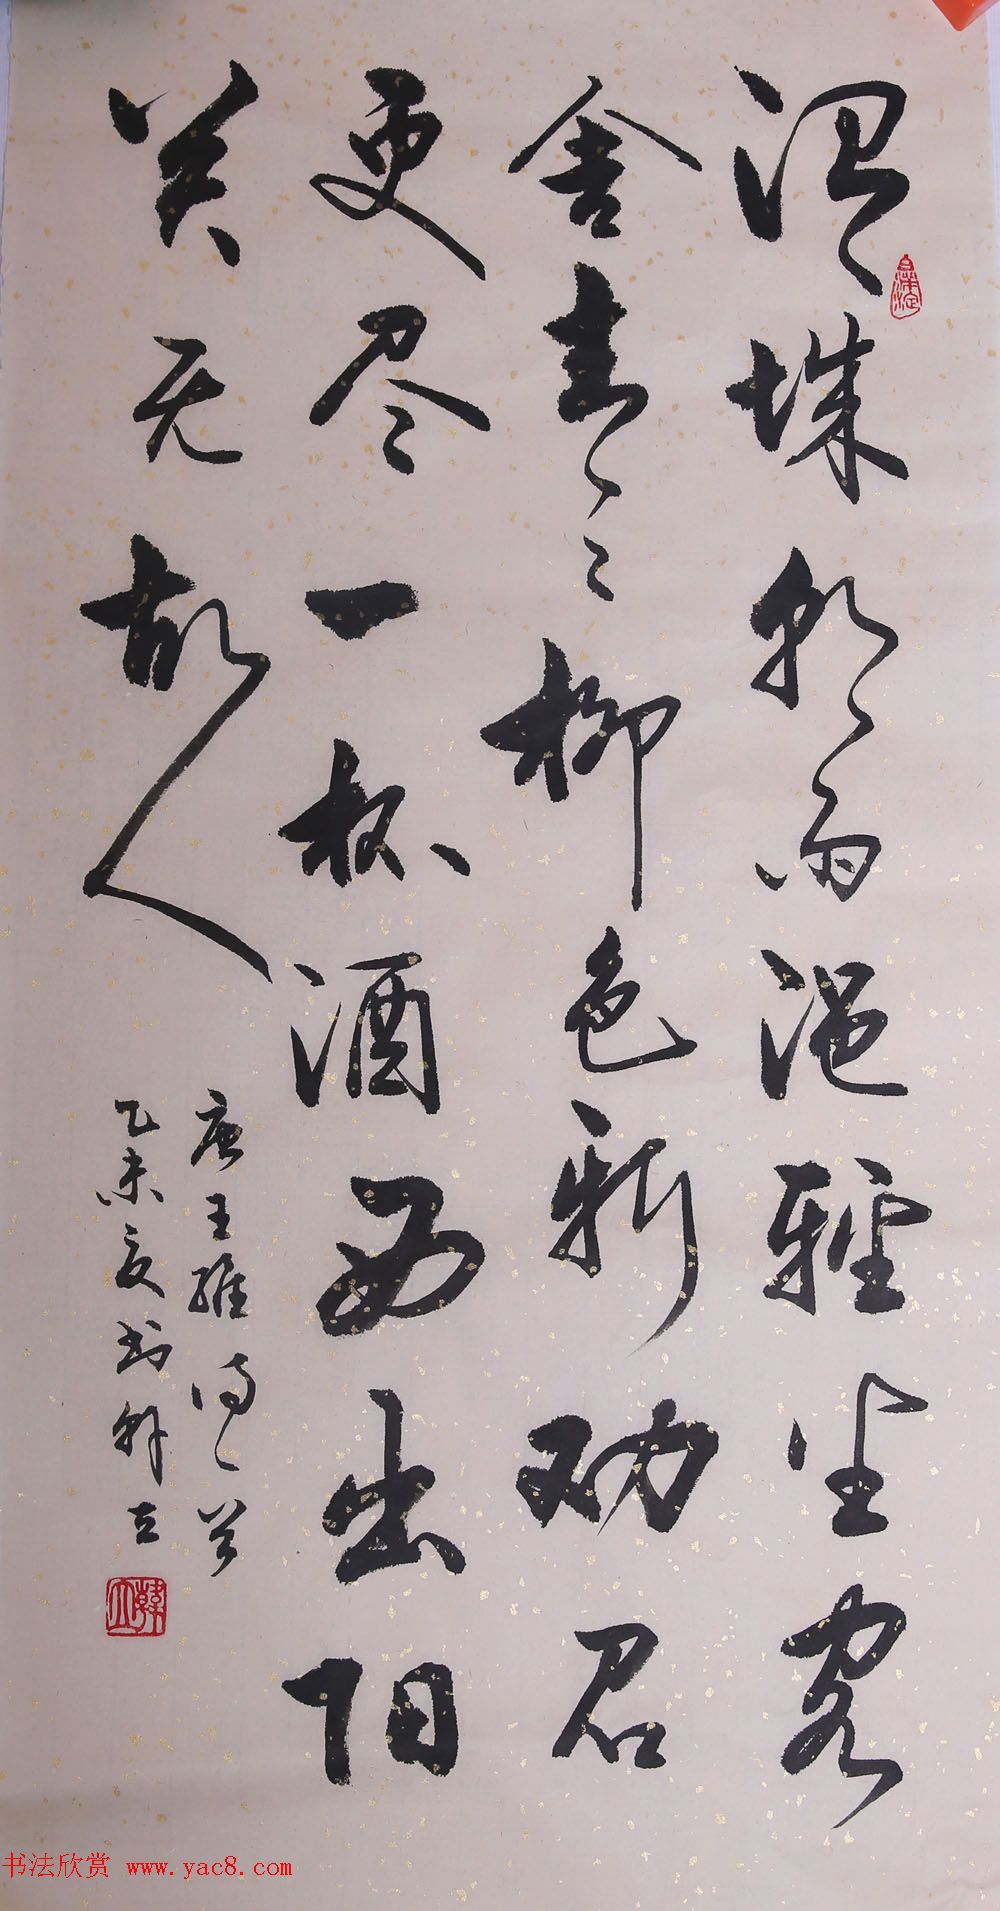 渭城朝雨浥輕尘客
舍青々柳色新劝君
更尽一杯酒西出阳
关无故人
唐王維诗一首
乙未夏书韩立
韓立
书法欣赏 www.yac8.com